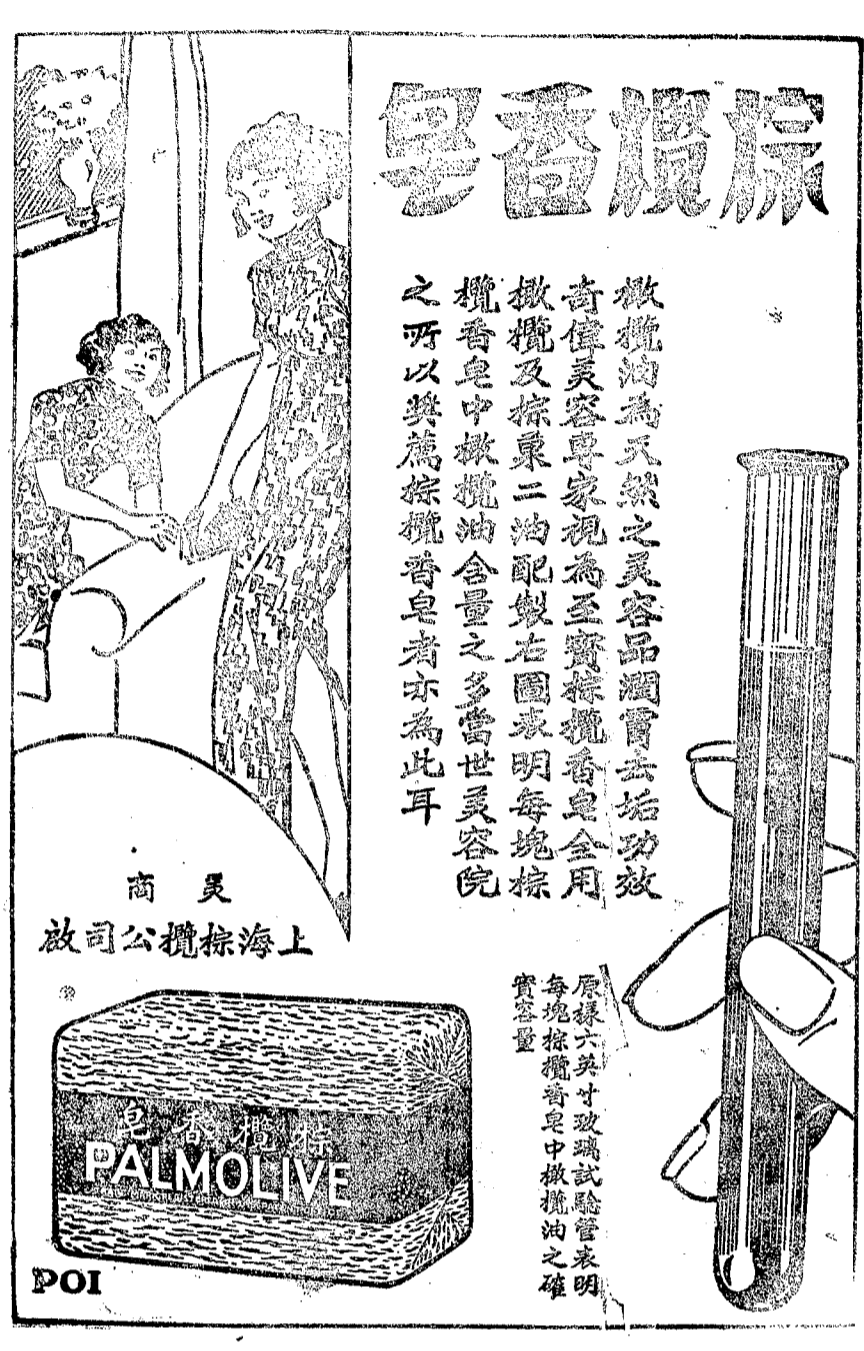 棕欖香皂
橄欖油為天然之美容品潤膚去垢功效
奇偉美容專家視為至寶棕欖香皂全用
橄欖及棕菓二油配製右圖表明每塊棕
欖香皂中橄欖油含量之多當世美容院
之所以獎薦棕欖香皂者亦為此耳
原樣六英寸玻璃試驗管表明
每塊棕欖香皂中橄欖油之確
實容量
美商
上海棕欖公司啟
棕欖香皂
PALMOLIVE
POI